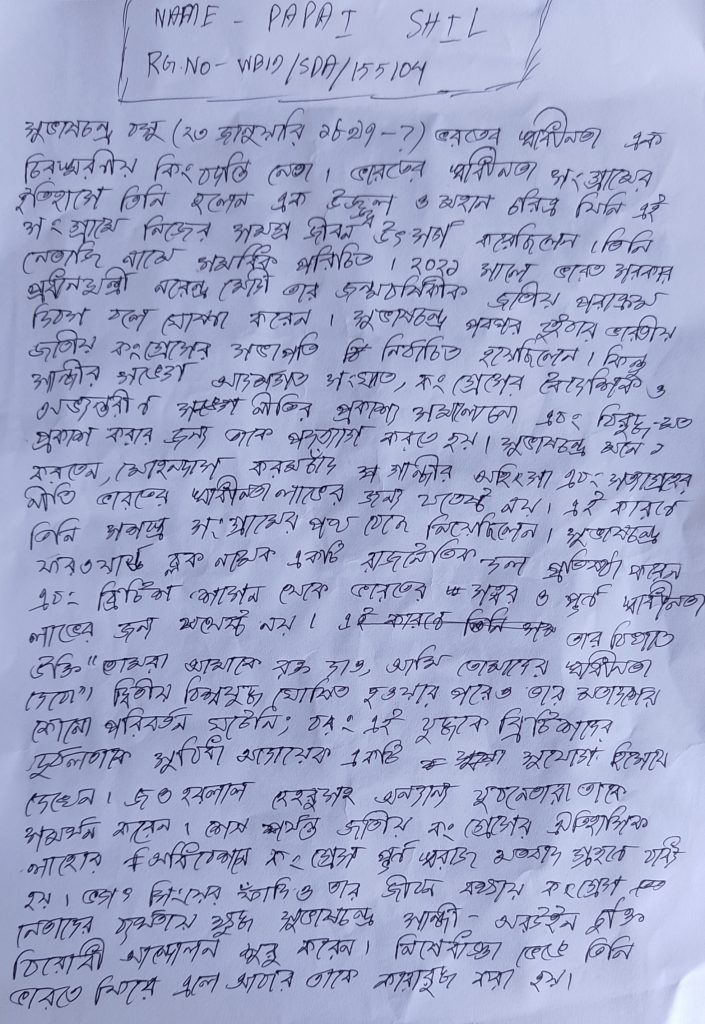 NAME - PAPAI SHIL
RG.NO- WB10/SDA/155104
সুভাষচন্দ্র বসু (২৩ জানুয়ারি ১৮৯৭-?) ভারতের স্বাধীনতা এক
চিরস্মরণীয় কিংবদন্তি নেতা। ভারতের স্বাধীনতা সংগ্রামের
ইতিহাসে তিনি হলেন এক উজ্জ্বল ও মহান চরিত্র যিনি এই
সংগ্রামে নিজের সমগ্র জীবন উৎসর্গ করেছিলেন। তিনি
নেতাজি নামে সমধিক পরিচিত। ২০২১ সালে ভারত সরকার
প্রধানমন্ত্রী নরেন্দ্র মোদী তার জন্মবার্ষিকীক জাতীয় পরাক্রম
দিবস বলে ঘোষণা করেন। সুভাষচন্দ্র পরপর দুইবার ভারতীয়
জাতীয় কংগ্রেসের সভাপতি নির্বাচিত হয়েছিলেন। কিন্তু
গান্ধীর সঙ্গে আদর্শগত সংঘাত, কংগ্রেসের বৈদেশিক ও
অভ্যন্তরীণ নীতির প্রকাশ্য সমালোচনা এবং বিরুদ্ধ-মত
প্রকাশ করার জন্য তাকে পদত্যাগ করতে হয়। সুভাষচন্দ্র মনে
করতেন, মোহনদাস করমচাঁদ গান্ধীর অহিংসা এবং সত্যাগ্রহের
নীতি ভারতের স্বাধীনতা লাভের জন্য যথেষ্ট নয়। এই কারণে
তিনি সশস্ত্র সংগ্রামের পথ বেছে নিয়েছিলেন। সুভাষচন্দ্র
ফরওয়ার্ড ব্লক নামক একটি রাজনৈতিক দল প্রতিষ্ঠা করেন
এবং ব্রিটিশ শাসন থেকে ভারতের সত্বর ও পূর্ণ স্বাধীনতা
লাভের জন্য যথেষ্ট নয়। এই কারণে তিনি তার বিখ্যাত
উক্তি "তোমরা আমাকে রক্ত দাও, আমি তোমাদের স্বাধীনতা
দেবো"। দ্বিতীয় বিশ্বযুদ্ধ ঘোষিত হওয়ার পরেও তার মতাদর্শের
কোনো পরিবর্তন ঘটেনি; বরং এই যুদ্ধকে ব্রিটিশদের
দুর্বলতাকে সুবিধা আদায়ের একটি সুযোগ হিসেবে
দেখেন। জওহরলাল নেহরুসহ অন্যান্য যুবনেতারা তাকে
সমর্থন করেন। শেষ পর্যন্ত জাতীয় কংগ্রেসের ঐতিহাসিক
লাহোর অধিবেশনে কংগ্রেস পূর্ণ স্বরাজ মতবাদ গ্রহণে বাধ্য
হয়। ভগৎ সিংয়ের ফাঁসি ও তার জীবন রক্ষায় কংগ্রেস
নেতাদের ব্যর্থতায় ক্ষুব্ধ সুভাষচন্দ্র গান্ধী-আরউইন চুক্তি
বিরোধী আন্দোলন শুরু করেন। নিষেধাজ্ঞা ভেঙে তিনি
ভারতে ফিরে এলে আবার তাকে কারারুদ্ধ করা হয়।